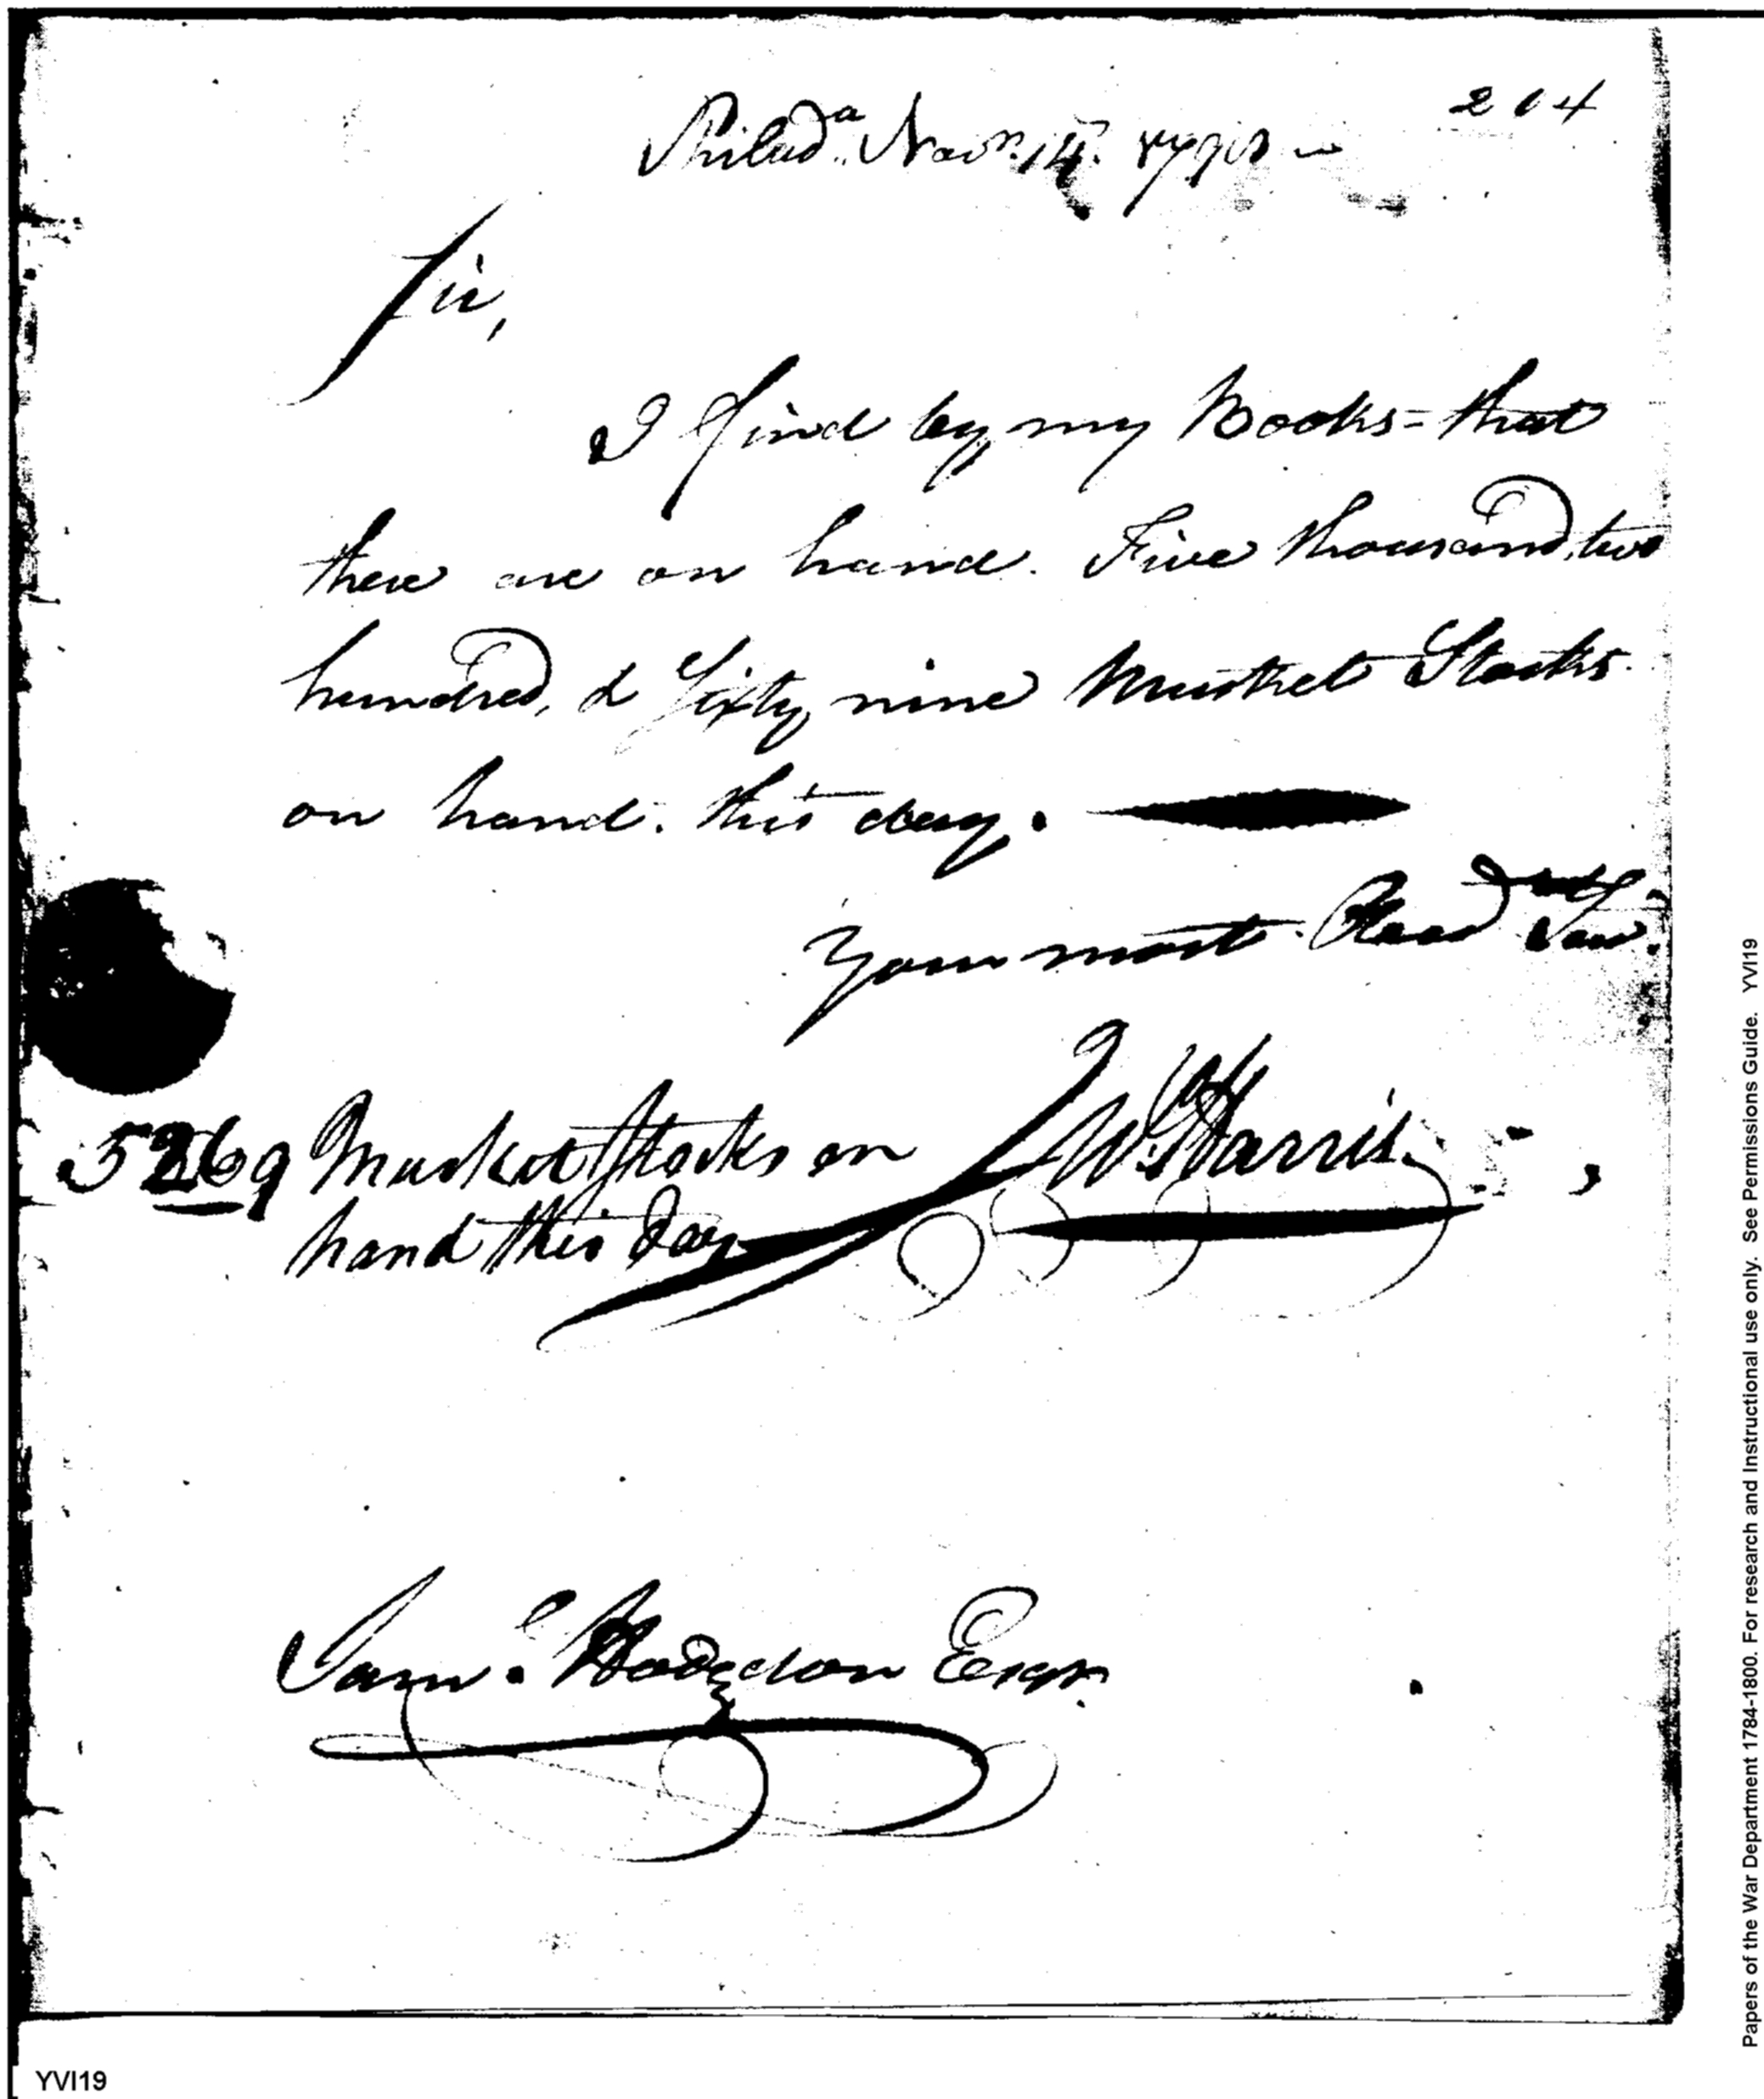 204
Philad.ª Nov.r 14. 1798
Sir,
I find by my Books = that
there are on hand. Five thousand, two
hundred, & Sixty, nine Musket Stocks.
on hand. this day.
Your most Obed
J W Harris.
5269 Musket Stocks on
hand this day
Sam.l Hodgdon Esqr.
YVI19
Papers of the War Department 1784-1800. For research and Instructional use only. See Permissions Guide. YVI19